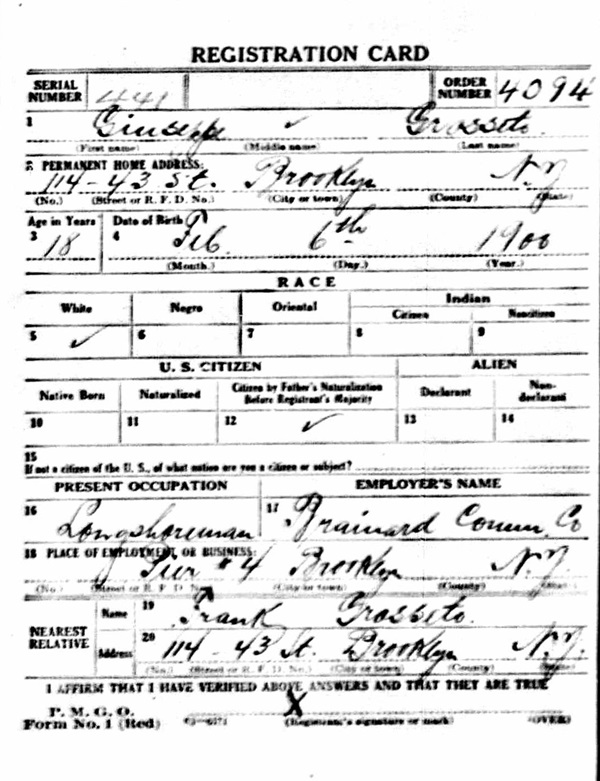 REGISTRATION CARD
SERIAL NUMBER 441 ORDER NUMBER 4094
1 Giuseppe ✓ Grosseto
(First name) (Middle name) (Last name)
2 PERMANENT HOME ADDRESS:
114-43 St. Brooklyn N.Y.
(No.) (Street or R. F. D. No.) (City or town) (County) (State)
Age in Years Date of Birth
3 18 4 Feb. 6th 1900
(Month.) (Day.) (Year.)
RACE
White Negro Oriental Indian
Citizen Noncitizen
5 ✓ 6 7 8 9
U. S. CITIZEN ALIEN
Native Born Naturalized Citizen by Father's Naturalization Before Registrant's Majority Declarant Non-declarant
10 11 12 ✓ 13 14
15
If not a citizen of the U. S., of what nation are you a citizen or subject?
PRESENT OCCUPATION EMPLOYER'S NAME
16 Longshoreman 17 Brainard Comm. Co
18 PLACE OF EMPLOYMENT OR BUSINESS:
Pier #4 Brooklyn N.Y.
(No.) (Street or R. F. D. No.) (City or town) (County) (State)
NEAREST RELATIVE
Name 19 Frank Grosseto
Address 20 114-43 St. Brooklyn N.Y.
(No.) (Street or R. F. D. No.) (City or town) (County) (State)
I AFFIRM THAT I HAVE VERIFIED ABOVE ANSWERS AND THAT THEY ARE TRUE
P. M. G. O.
Form No. 1 (Red) X
(Registrant's signature or mark) (OVER)